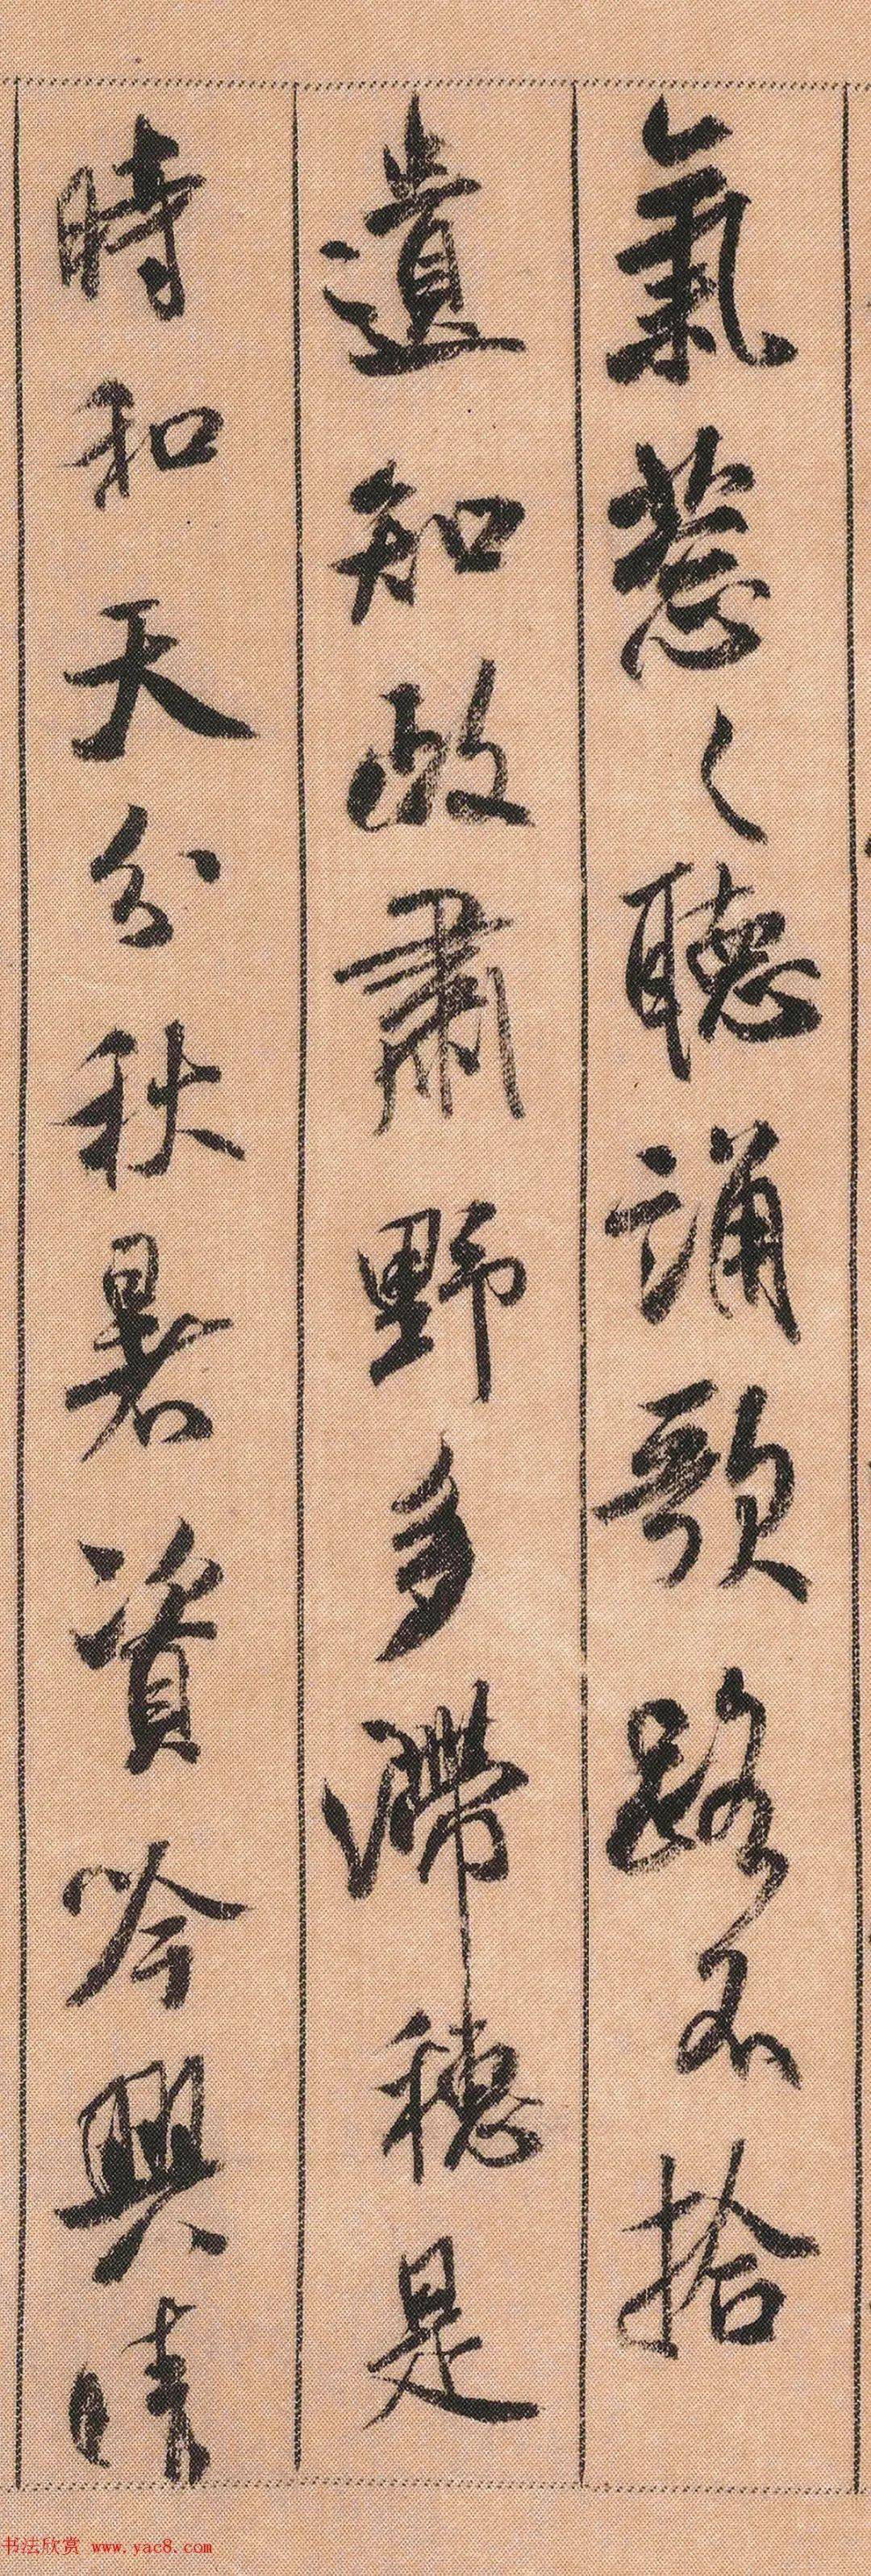 氣葱々聽誦歌路不拾
遺知政肅野多滯穗是
時和天分秋暑資吟興晴
书法欣赏 www.yac8.com